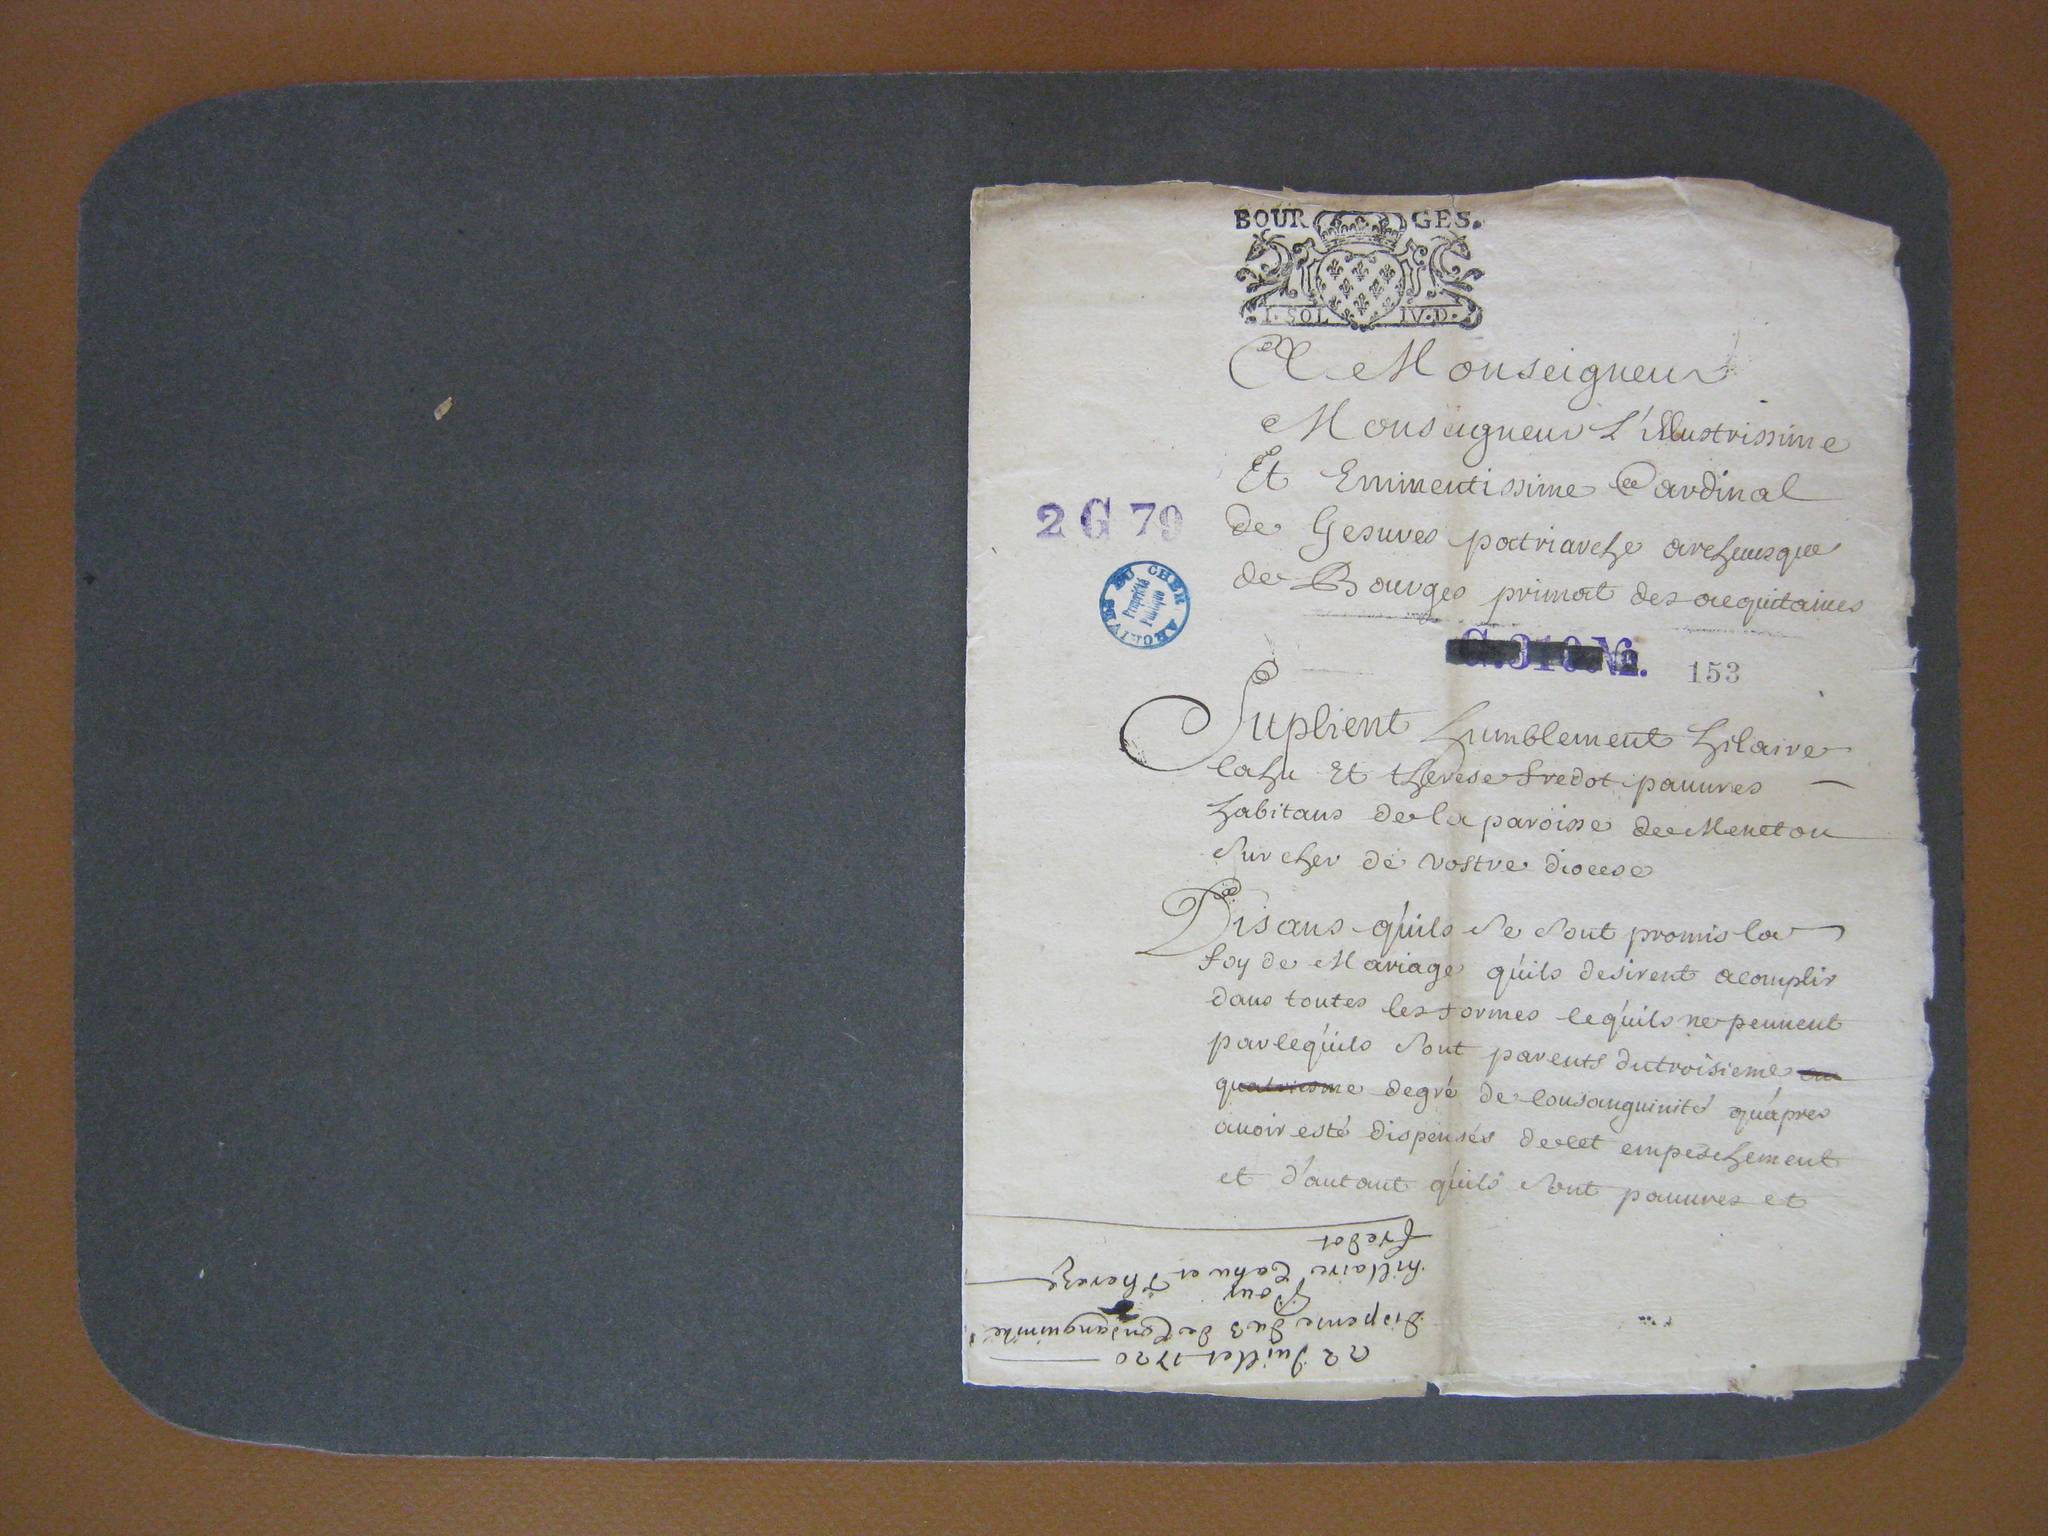 BOURGES.
I. SOL IV. D.
A Monseigneur
Monseigneur L'illustrissime
Et Eminentissime Cardinal
de Gesvres patriarche archeuesque
de Bourges primat des acquitaines
2 G 79
ARCHIVES DU CHER
Propriété
Publique
G.310.N1.
153
Suplient humblement hilaire
Cahu Et therese fredot pauures
habitans de la paroisse de Menetou
sur cher de vostre diocese
Disans qu'ils se sont promis la
foy de Mariage qu'ils desirent acomplir
dans toutes les formes ce qu'ils ne peuuent
parce qu'ils sont parents du troisieme ou
quatriesme degré de consanguinité qu'apres
auoir esté dispensés de cet empeschement
et d'autant qu'ils sont pauures et
22 Juillet 1720
Dispense du 3 de Consanguinité
Pour
hillaire Cahu et Thereze
fredot